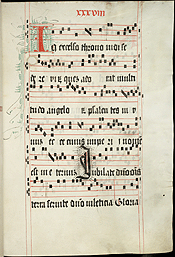 xxxviii
In excelso throno vidi se
dere vi
quem ado rat multi
tudo angelo psalentes in v
num ecce cuius imperi nomen
est in eternum Jubilate deo omnis
terra seruite dno in leticia Gloria